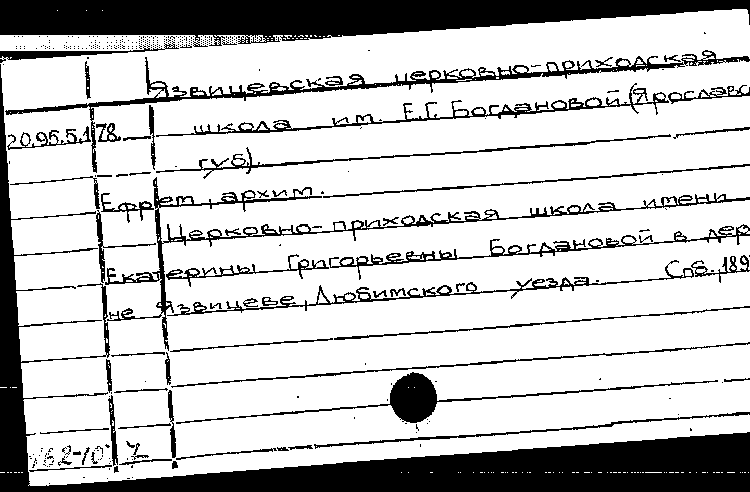 Язвицевская церковно-приходская
20.95.5.178. школа им. Е.Г. Богдановой (Ярославс
губ).
Ефрем, архим.
Церковно-приходская школа имени
Екатерины Григорьевны Богдановой в дер
не Язвицеве, Любимского уезда. Спб., 189
V62-10 7